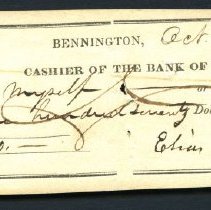 BENNINGTON, Oct
CASHIER OF THE BANK OF
Myself or
hundred seventy Dol
Elias